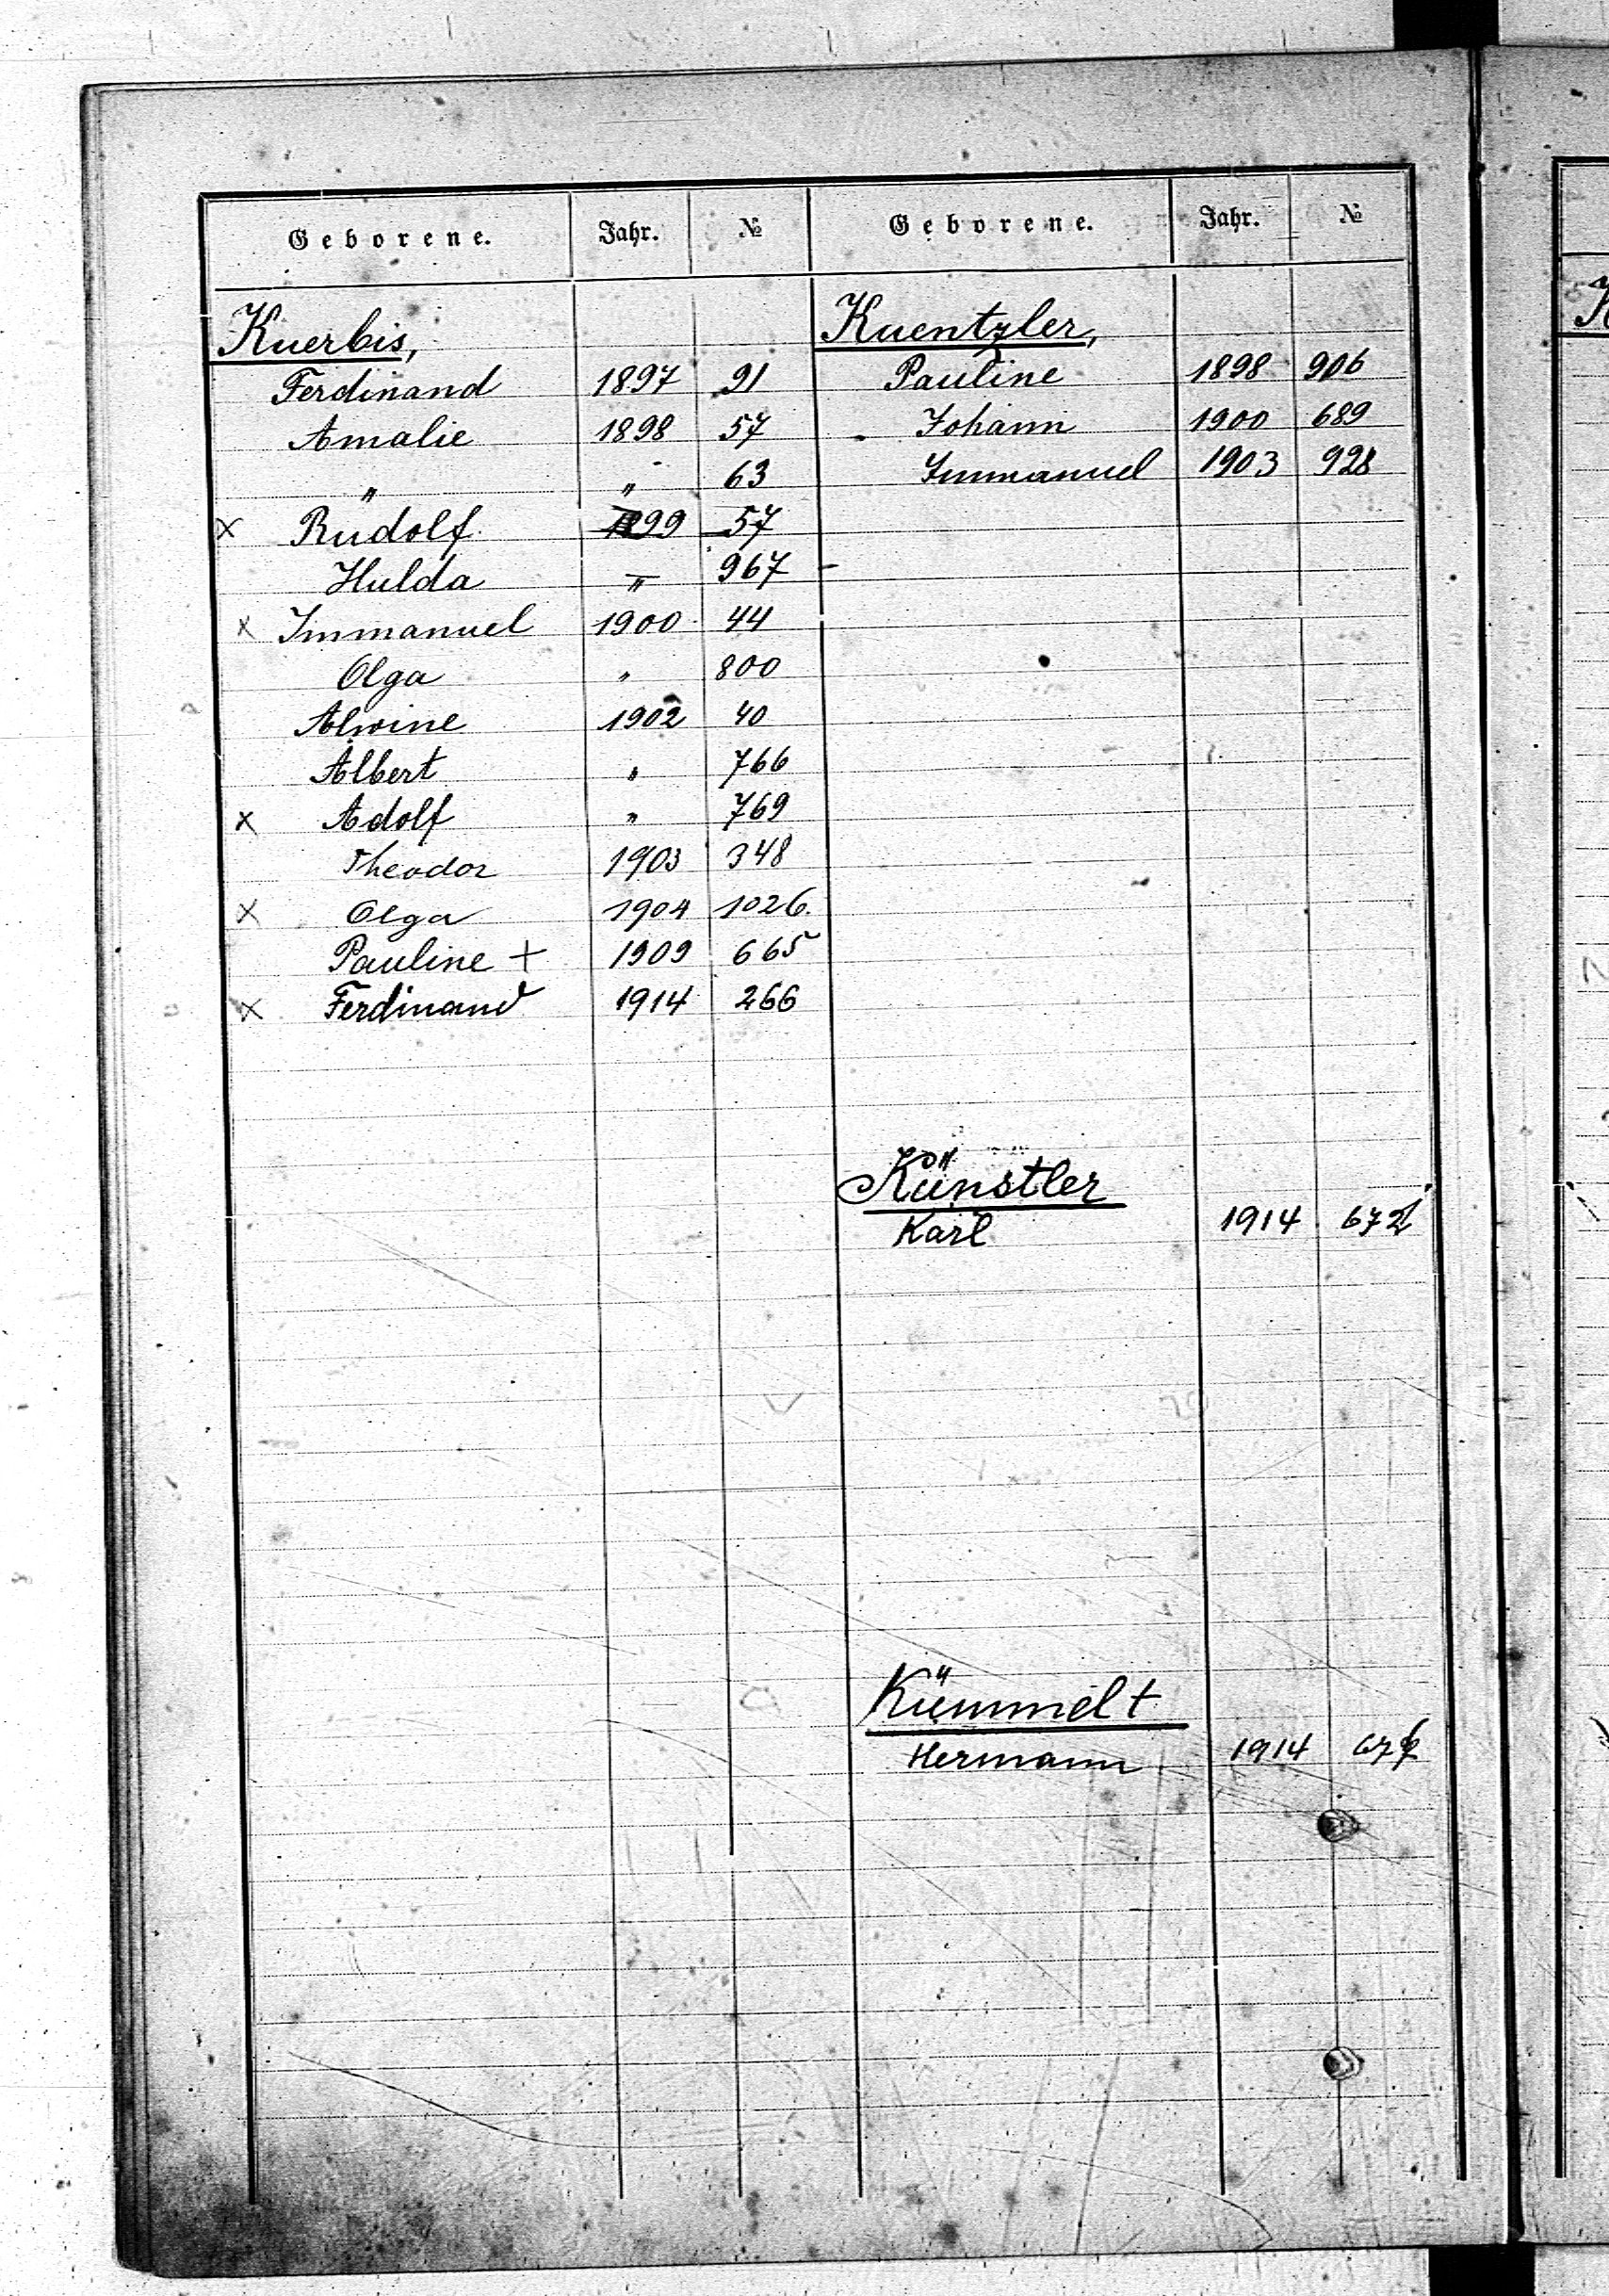 Geborene. Jahr. №
Kuerbis,
Ferdinand 1897 91
Amalie 1898 57
" " 63
x Rudolf 1899 57
Hulda " 967
x Immanuel 1900 44
Olga " 800
Alwine 1902 40
Albert " 766
x Adolf " 769
Theodor 1903 348
x Olga 1904 1026.
Pauline + 1909 665
x Ferdinand 1914 266
Geborene. Jahr. №
Kuentzler,
Pauline 1898 906
Johann 1900 689
Immanuel 1903 928
Künstler
Karl 1914
Kümmel +
Hermann 1914